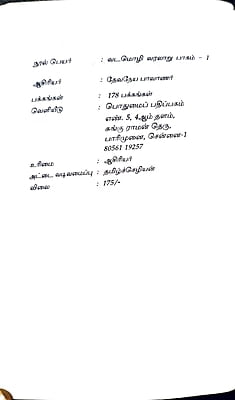 நூல் பெயர் : வடமொழி வரலாறு பாகம் - 1
ஆசிரியர் : தேவநேய பாவாணர்
பக்கங்கள் : 178 பக்கங்கள்
வெளியீடு : பொதுமைப் பதிப்பகம்
எண். 5, 4ஆம் தளம்,
சுங்கு ராமன் தெரு,
பாரிமுனை, சென்னை-1
80561 19257
உரிமை : ஆசிரியர்
அட்டை வடிவமைப்பு : தமிழ்ச்செழியன்
விலை : 175/-